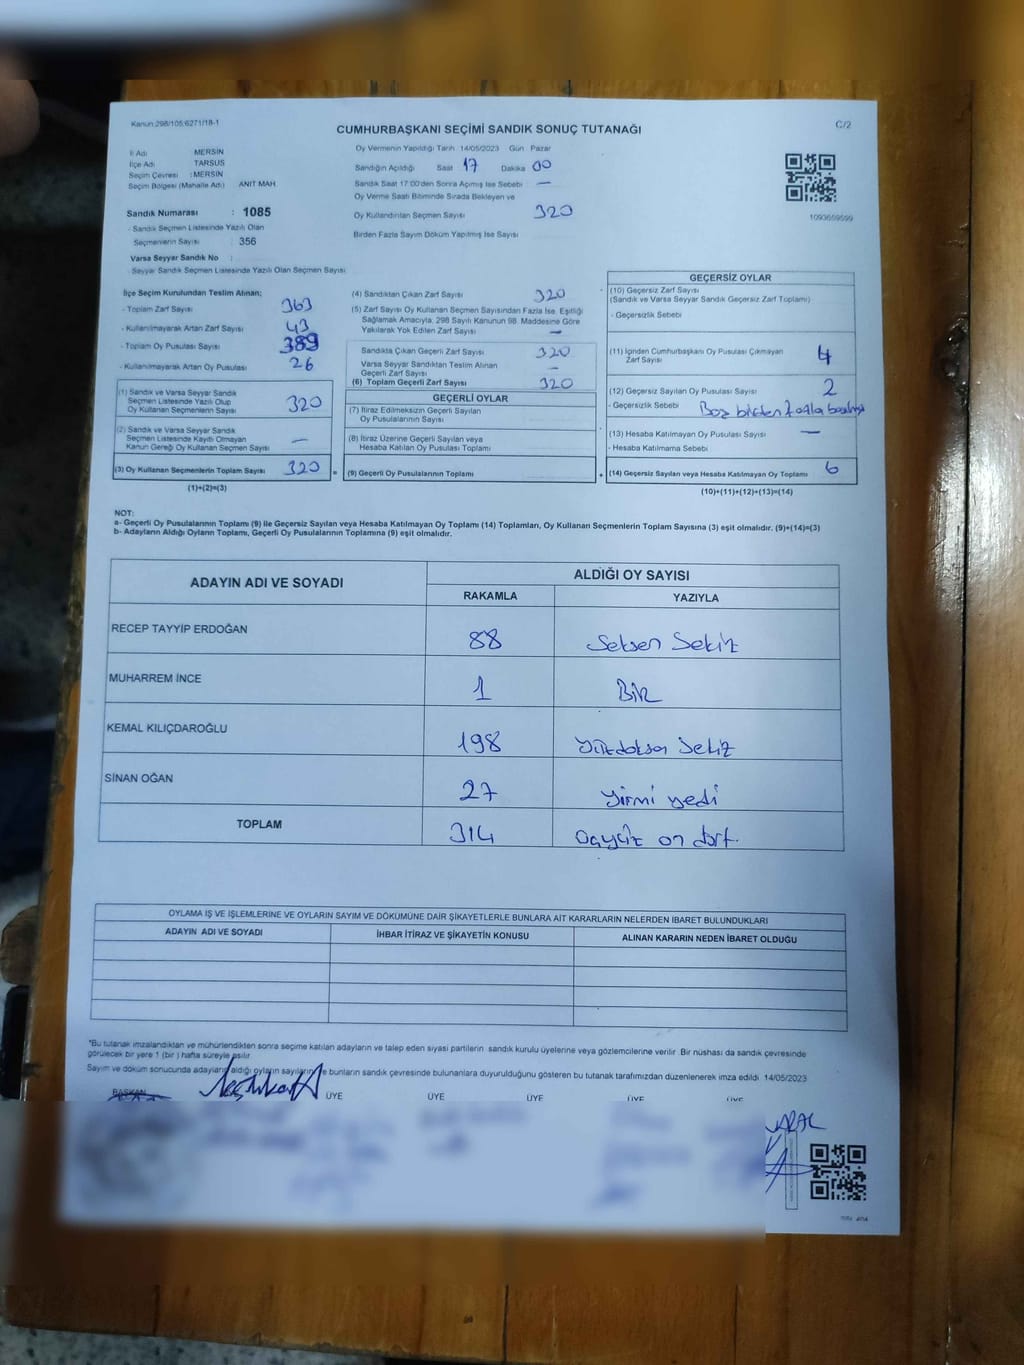 Kanun:298/105;6271/18-1
CUMHURBAŞKANI SEÇİMİ SANDIK SONUÇ TUTANAĞI
C/2
İl Adı : MERSİN
İlçe Adı : TARSUS
Seçim Çevresi : MERSİN
Seçim Bölgesi (Mahalle Adı) ANIT MAH.
Sandık Numarası : 1085
- Sandık Seçmen Listesinde Yazılı Olan
Seçmenlerin Sayısı : 356
Varsa Seyyar Sandık No :
- Seyyar Sandık Seçmen Listesinde Yazılı Olan Seçmen Sayısı
Oy Vermenin Yapıldığı Tarih 14/05/2023 Gün Pazar
Sandığın Açıldığı Saat 17 Dakika 00
Sandık Saat 17:00'den Sonra Açmış İse Sebebi —
Oy Verme Saati Bitiminde Sırada Bekleyen ve
Oy Kullandırılan Seçmen Sayısı 320
Birden Fazla Sayım Döküm Yapılmış İse Sayısı
1093659599
İlçe Seçim Kurulundan Teslim Alınan;
- Toplam Zarf Sayısı 363
- Kullanılmayarak Artan Zarf Sayısı 43
- Toplam Oy Pusulası Sayısı 389
- Kullanılmayarak Artan Oy Pusulası 26
(1) Sandık ve Varsa Seyyar Sandık
Seçmen Listesinde Yazılı Olup
Oy Kullanan Seçmenlerin Sayısı 320
(2) Sandık ve Varsa Seyyar Sandık
Seçmen Listesinde Kayıtlı Olmayan
Kanun Gereği Oy Kullanan Seçmen Sayısı —
(3) Oy Kullanan Seçmenlerin Toplam Sayısı 320
(1)+(2)=(3)
(4) Sandıktan Çıkan Zarf Sayısı 320
(5) Zarf Sayısı Oy Kullanan Seçmen Sayısından Fazla İse, Eşitliği
Sağlamak Amacıyla, 298 Sayılı Kanunun 98. Maddesine Göre
Yakılarak Yok Edilen Zarf Sayısı —
Sandıkta Çıkan Geçerli Zarf Sayısı 320
Varsa Seyyar Sandıktan Teslim Alınan
Geçerli Zarf Sayısı —
(6) Toplam Geçerli Zarf Sayısı 320
GEÇERLİ OYLAR
(7) İtiraz Edilmeksizin Geçerli Sayılan
Oy Pusulalarının Sayısı
(8) İtiraz Üzerine Geçerli Sayılan veya
Hesaba Katılan Oy Pusulası Toplamı
= (9) Geçerli Oy Pusulalarının Toplamı
GEÇERSİZ OYLAR
(10) Geçersiz Zarf Sayısı
(Sandık ve Varsa Seyyar Sandık Geçersiz Zarf Toplamı)
- Geçersizlik Sebebi
(11) İçinden Cumhurbaşkanı Oy Pusulası Çıkmayan
Zarf Sayısı 4
(12) Geçersiz Sayılan Oy Pusulası Sayısı 2
- Geçersizlik Sebebi birden fazla
(13) Hesaba Katılmayan Oy Pusulası Sayısı —
- Hesaba Katılmama Sebebi
+ (14) Geçersiz Sayılan veya Hesaba Katılmayan Oy Toplamı 6
(10)+(11)+(12)+(13)=(14)
NOT:
a- Geçerli Oy Pusulalarının Toplamı (9) ile Geçersiz Sayılan veya Hesaba Katılmayan Oy Toplamı (14) Toplamları, Oy Kullanan Seçmenlerin Toplam Sayısına (3) eşit olmalıdır. (9)+(14)=(3)
b- Adayların Aldığı Oyların Toplamı, Geçerli Oy Pusulalarının Toplamına (9) eşit olmalıdır.
ADAYIN ADI VE SOYADI
ALDIĞI OY SAYISI
RAKAMLA YAZIYLA
RECEP TAYYİP ERDOĞAN 88 Seksen Sekiz
MUHARREM İNCE 1 Bir
KEMAL KILIÇDAROĞLU 198 Yüzdoksan Sekiz
SİNAN OĞAN 27 Yirmi yedi
TOPLAM 314 Üçyüz on dört.
OYLAMA İŞ VE İŞLEMLERİNE VE OYLARIN SAYIM VE DÖKÜMÜNE DAİR ŞİKAYETLERLE BUNLARA AİT KARARLARIN NELERDEN İBARET BULUNDUKLARI
ADAYIN ADI VE SOYADI İHBAR İTİRAZ VE ŞİKAYETİN KONUSU ALINAN KARARIN NEDEN İBARET OLDUĞU
*Bu tutanak imzalandıktan ve mühürlendikten sonra seçime katılan adayların ve talep eden siyasi partilerin sandık kurulu üyelerine veya gözlemcilerine verilir. Bir nüshası da sandık çevresinde
görülecek bir yere 1 (bir ) hafta süreyle asılır.
Sayım ve döküm sonucunda adayların aldığı oyların sayılarını ve bunların sandık çevresinde bulunanlara duyurulduğunu gösteren bu tutanak tarafımızdan düzenlenerek imza edildi. 14/05/2023
BAŞKAN ÜYE ÜYE ÜYE ÜYE ÜYE